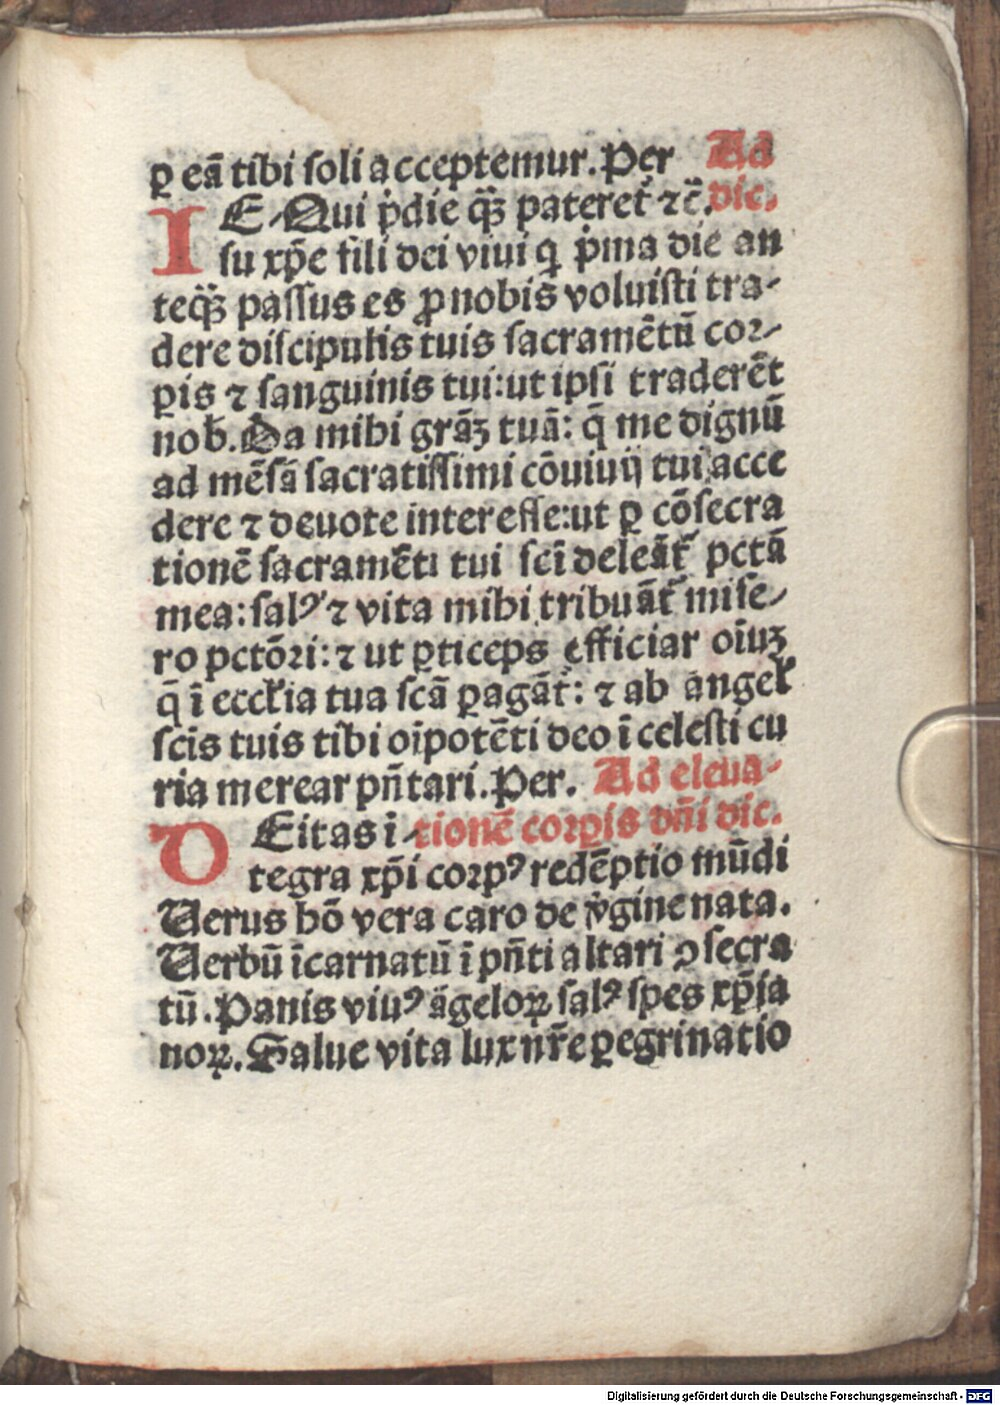 ꝑ eã tibi soli acceptemur. Per Ad
E-Qui p̍die qꝫ̃ pateret᷑ ⁊c̃. dic.
I su xp̃e fili dei viui q p̍ma die an
teqꝫ̃ passus es ꝓ nobis voluisti tra-
dere discipulis tuis sacramẽtũ cor-
ꝑis ⁊ sanguinis tui: ut ipsi traderẽt
nob. Da mihi grãꝫ tuã: q̃ me dignũ
ad mẽsã sacratissimi cõuiuij tui acce
dere ⁊ deuote interesse: ut ꝑ cõsecra
tionẽ sacramẽti tui scĩ deleãt᷑ pctã
mea: salꝰ ⁊ vita mihi tribuãt᷑ mise-
ro pctõri: ⁊ ut ꝑticeps efficiar oĩuꝫ
q̃ ĩ eccĺia tua scã ꝑagãt᷑: ⁊ ab angeĺ
scis tuis tibi oĩpotẽti deo ĩ celesti cu
ria merear pñtari. Per. Ad eleua-
D Eitas ĩ-tionẽ corꝑis dñi dic.
tegra xp̃i corpꝰ redẽptio mũdi
Uerus hõ vera caro de v̍gine nata.
Uerbũ ĩcarnatũ ĩ pñti altari ꝯsecra
tũ. Panis viuꝰ ãgeloꝝ salꝰ spes xp̃ia
noꝝ. Salue vita lux nr̃e ꝑegrinatio
Digitalisierung gefördert durch die Deutsche Forschungsgemeinschaft - DFG